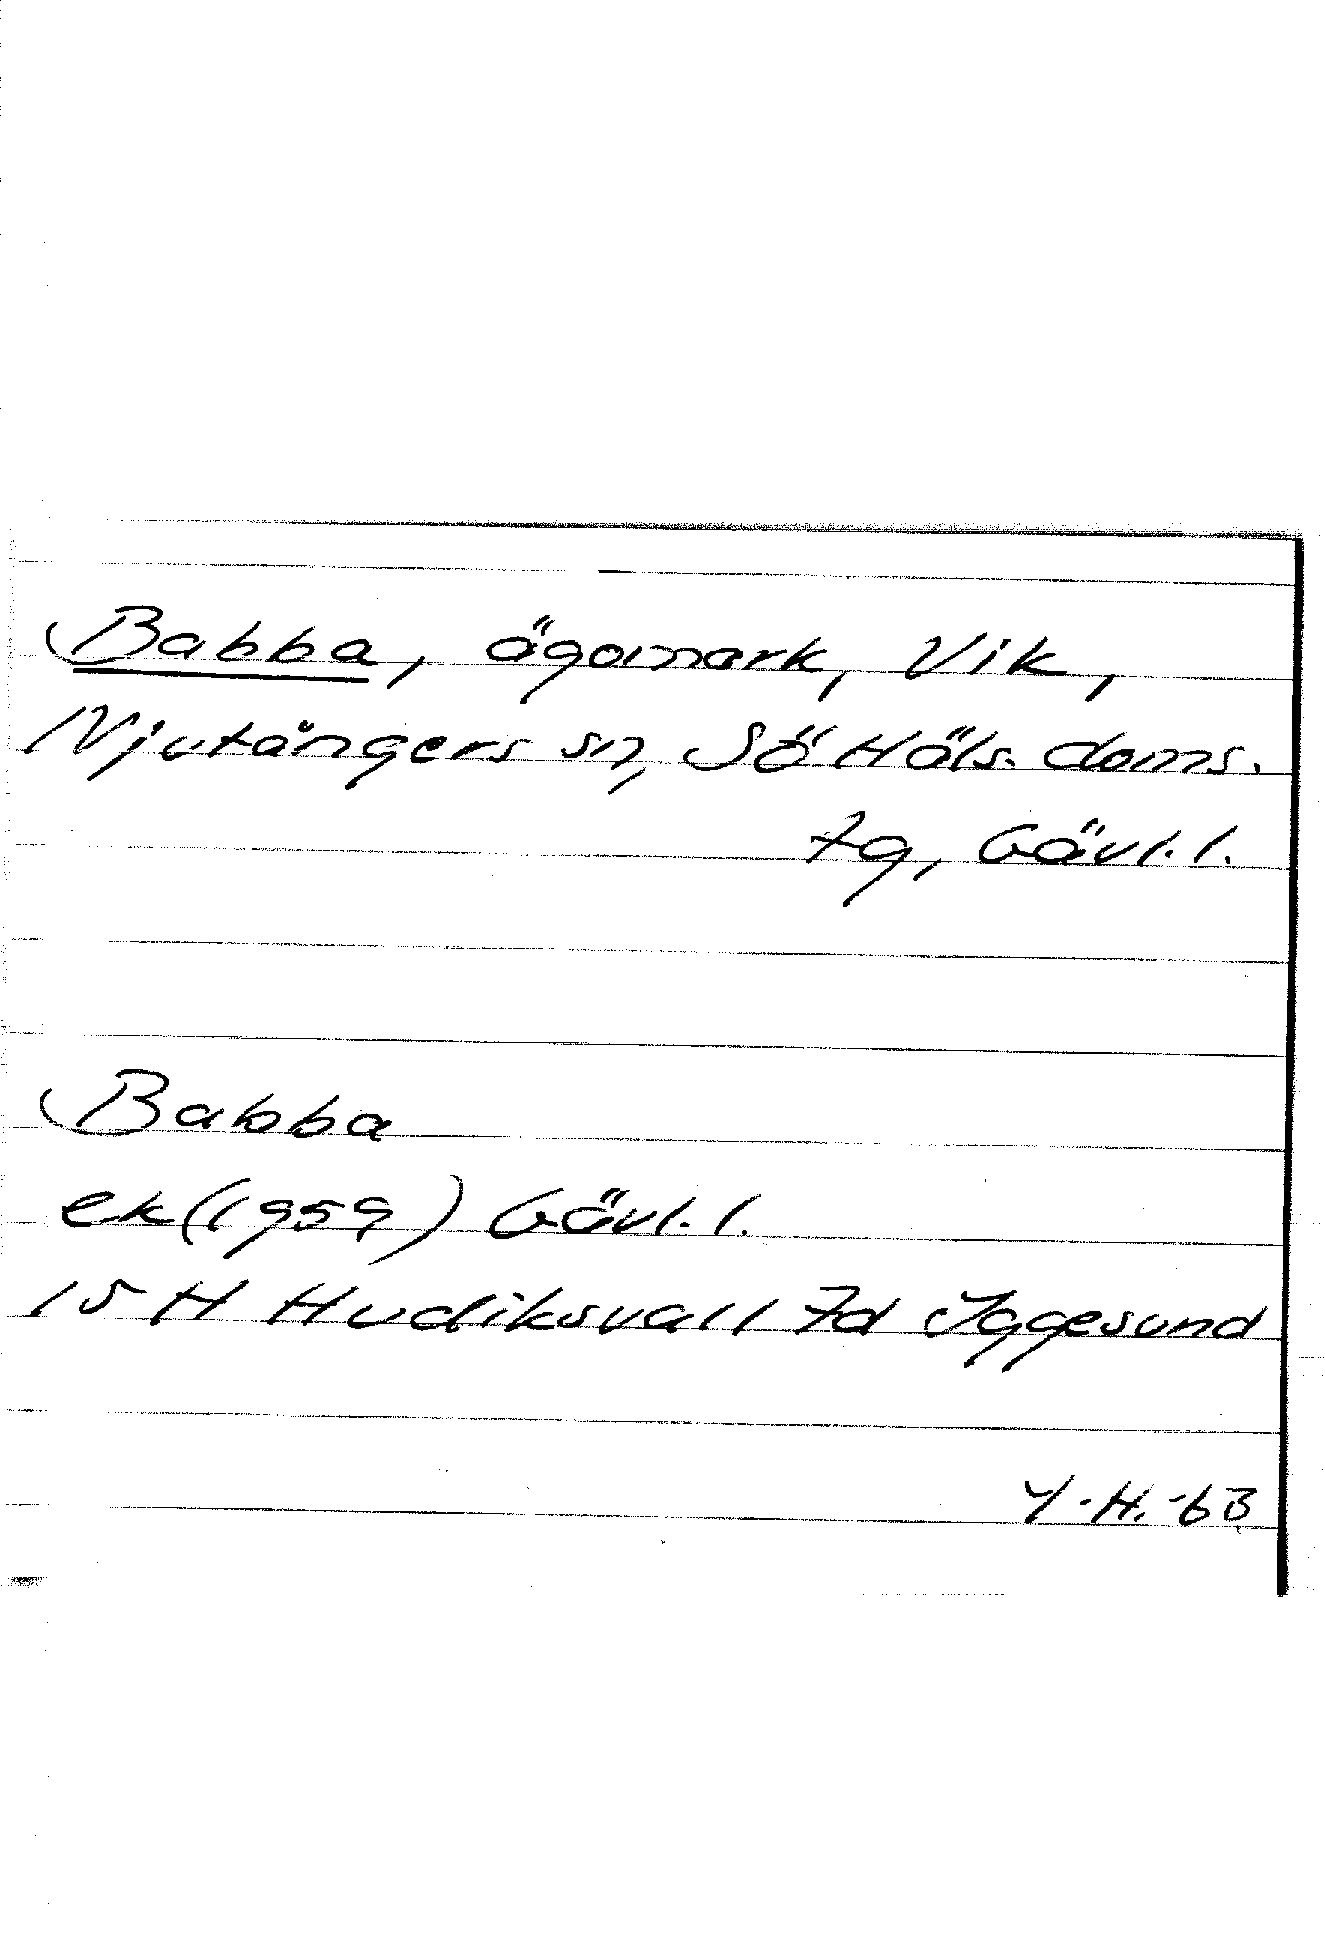 Babba, ägomark, Vik,
Njutångers sn, Sö Häls. doms.
tg, Gävl.l.
Babba
ek(1959) Gävl.l.
15 H Hudiksvall 7d Iggesund
Y.H.-63